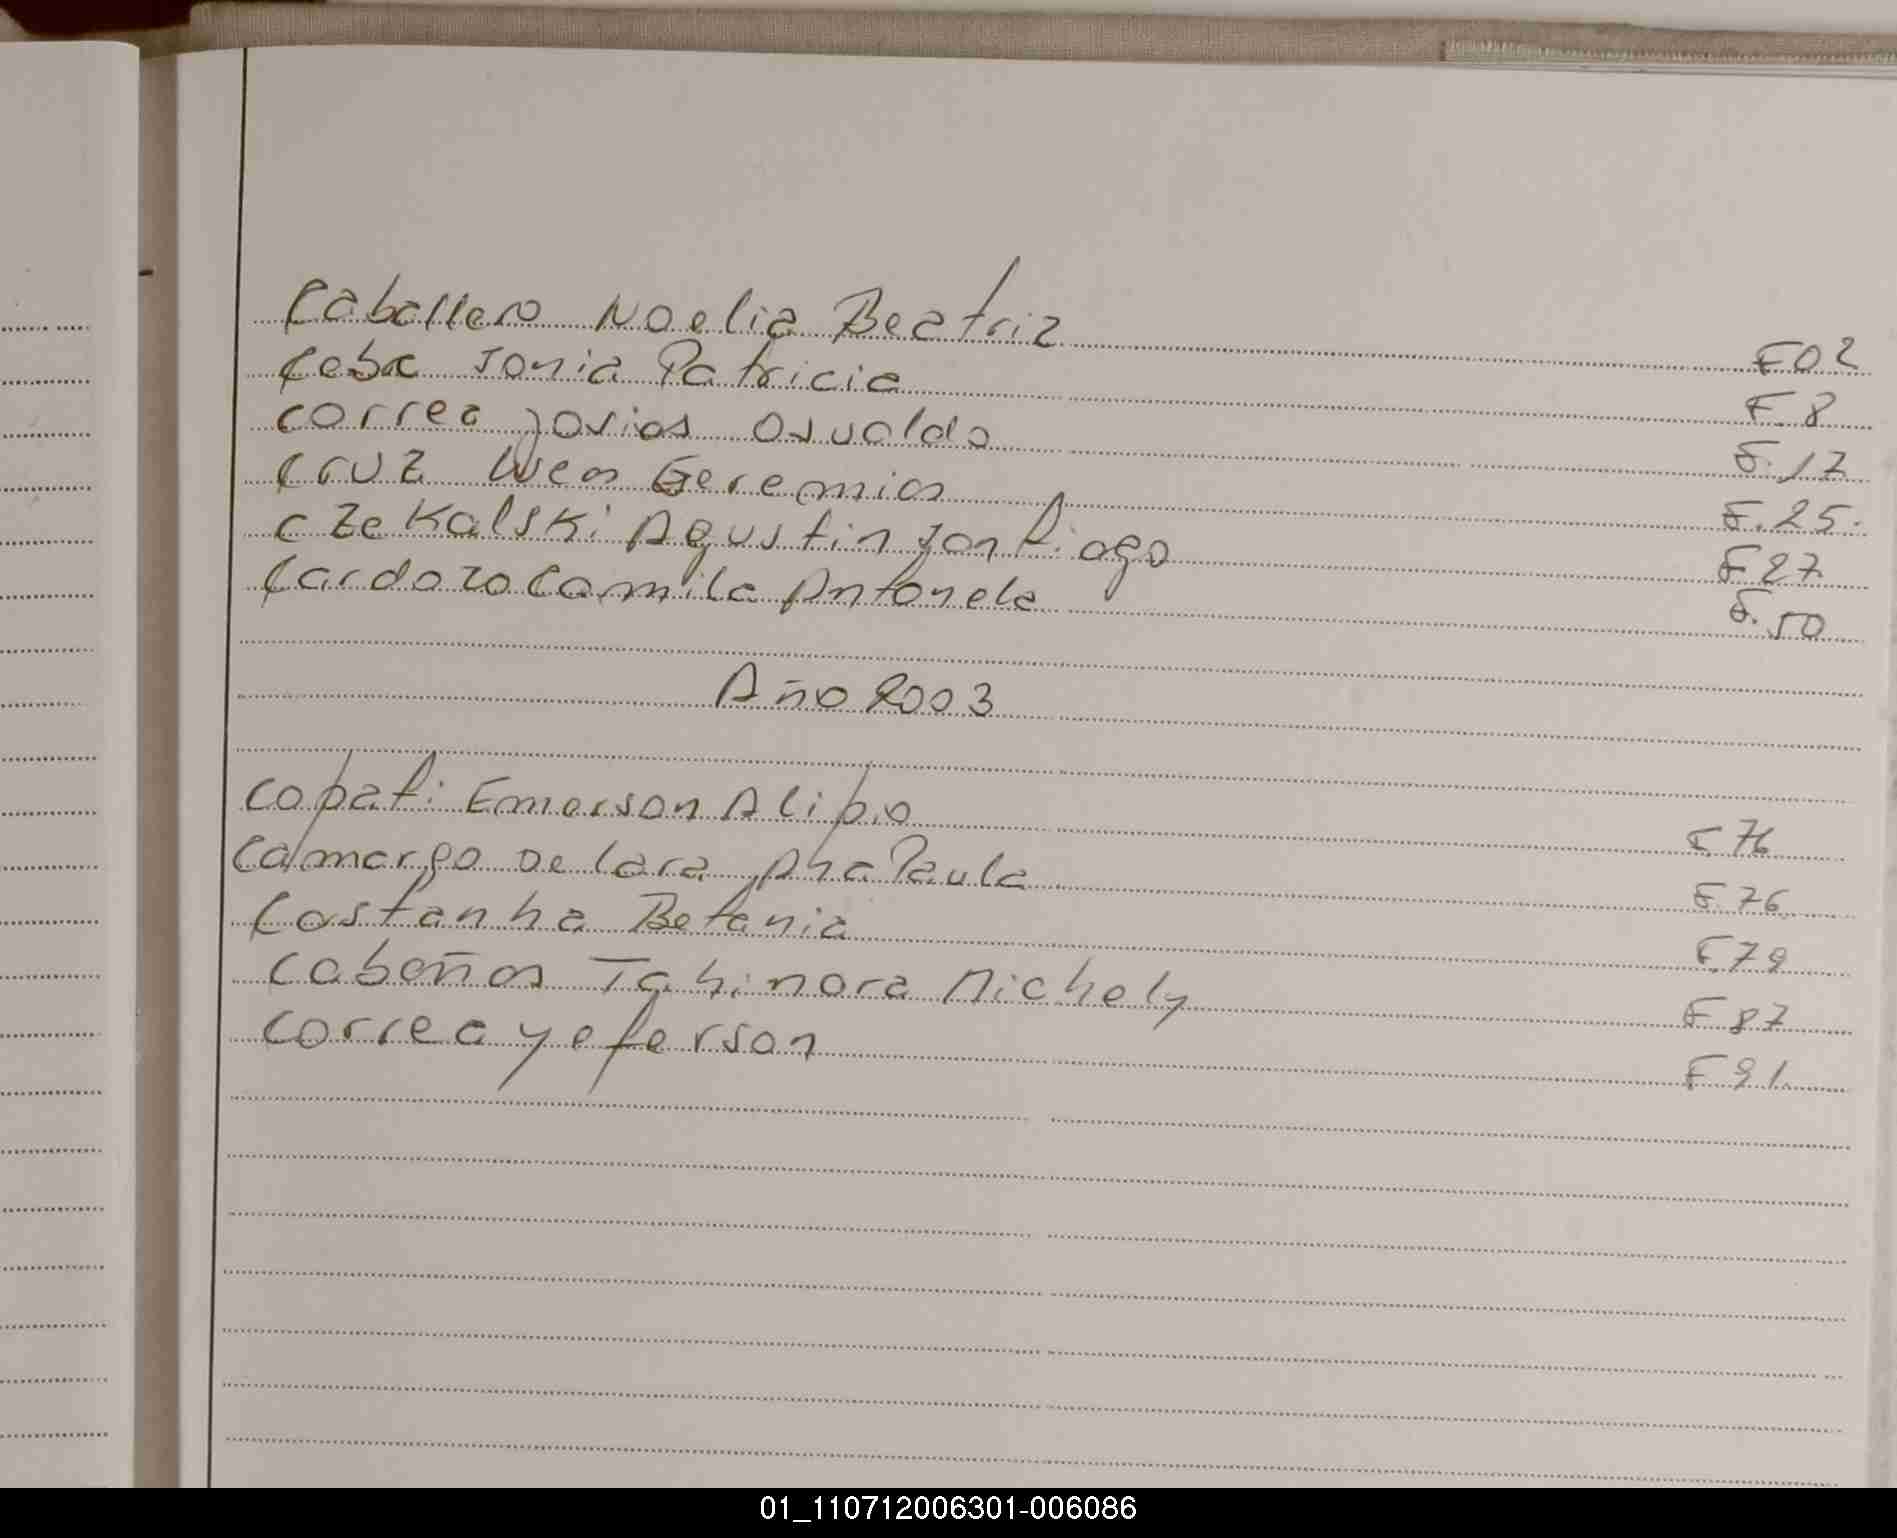 Caballero Noelia Beatriz F02
Ceba Sonia Patricia F.8
Correa Josias Osvaldo F.17
Cruz Lucas Geremias F.25.
Czekalski Agustin Santiago F27
Cardozo Camila Antonela F.50
Año 2003
Copati Emerson Alipio F.76
Camargo De Lara Ana Paula F.76.
Castanha Betania F.79
Cabañas Tahinara Michely F87
Correa Yeferson F91.
01_110712006301-006086